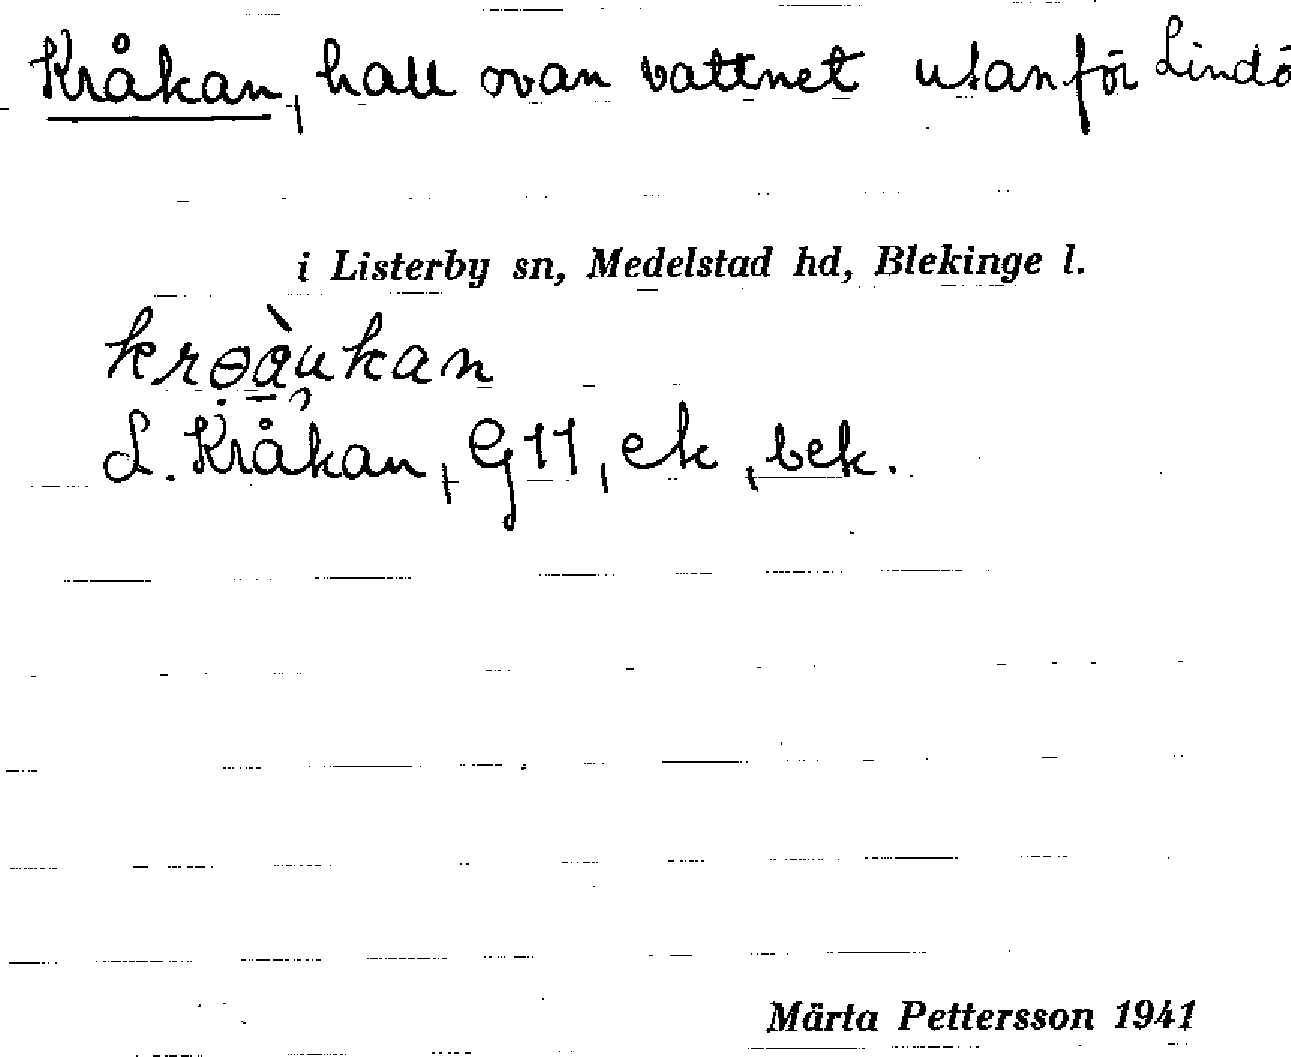 Kråkan, hall ovan vattnet utanför Lindö
i Listerby sn, Medelstad hd, Blekinge l.
L. Kråkan, G11, ek, bek.
Märta Pettersson 1941